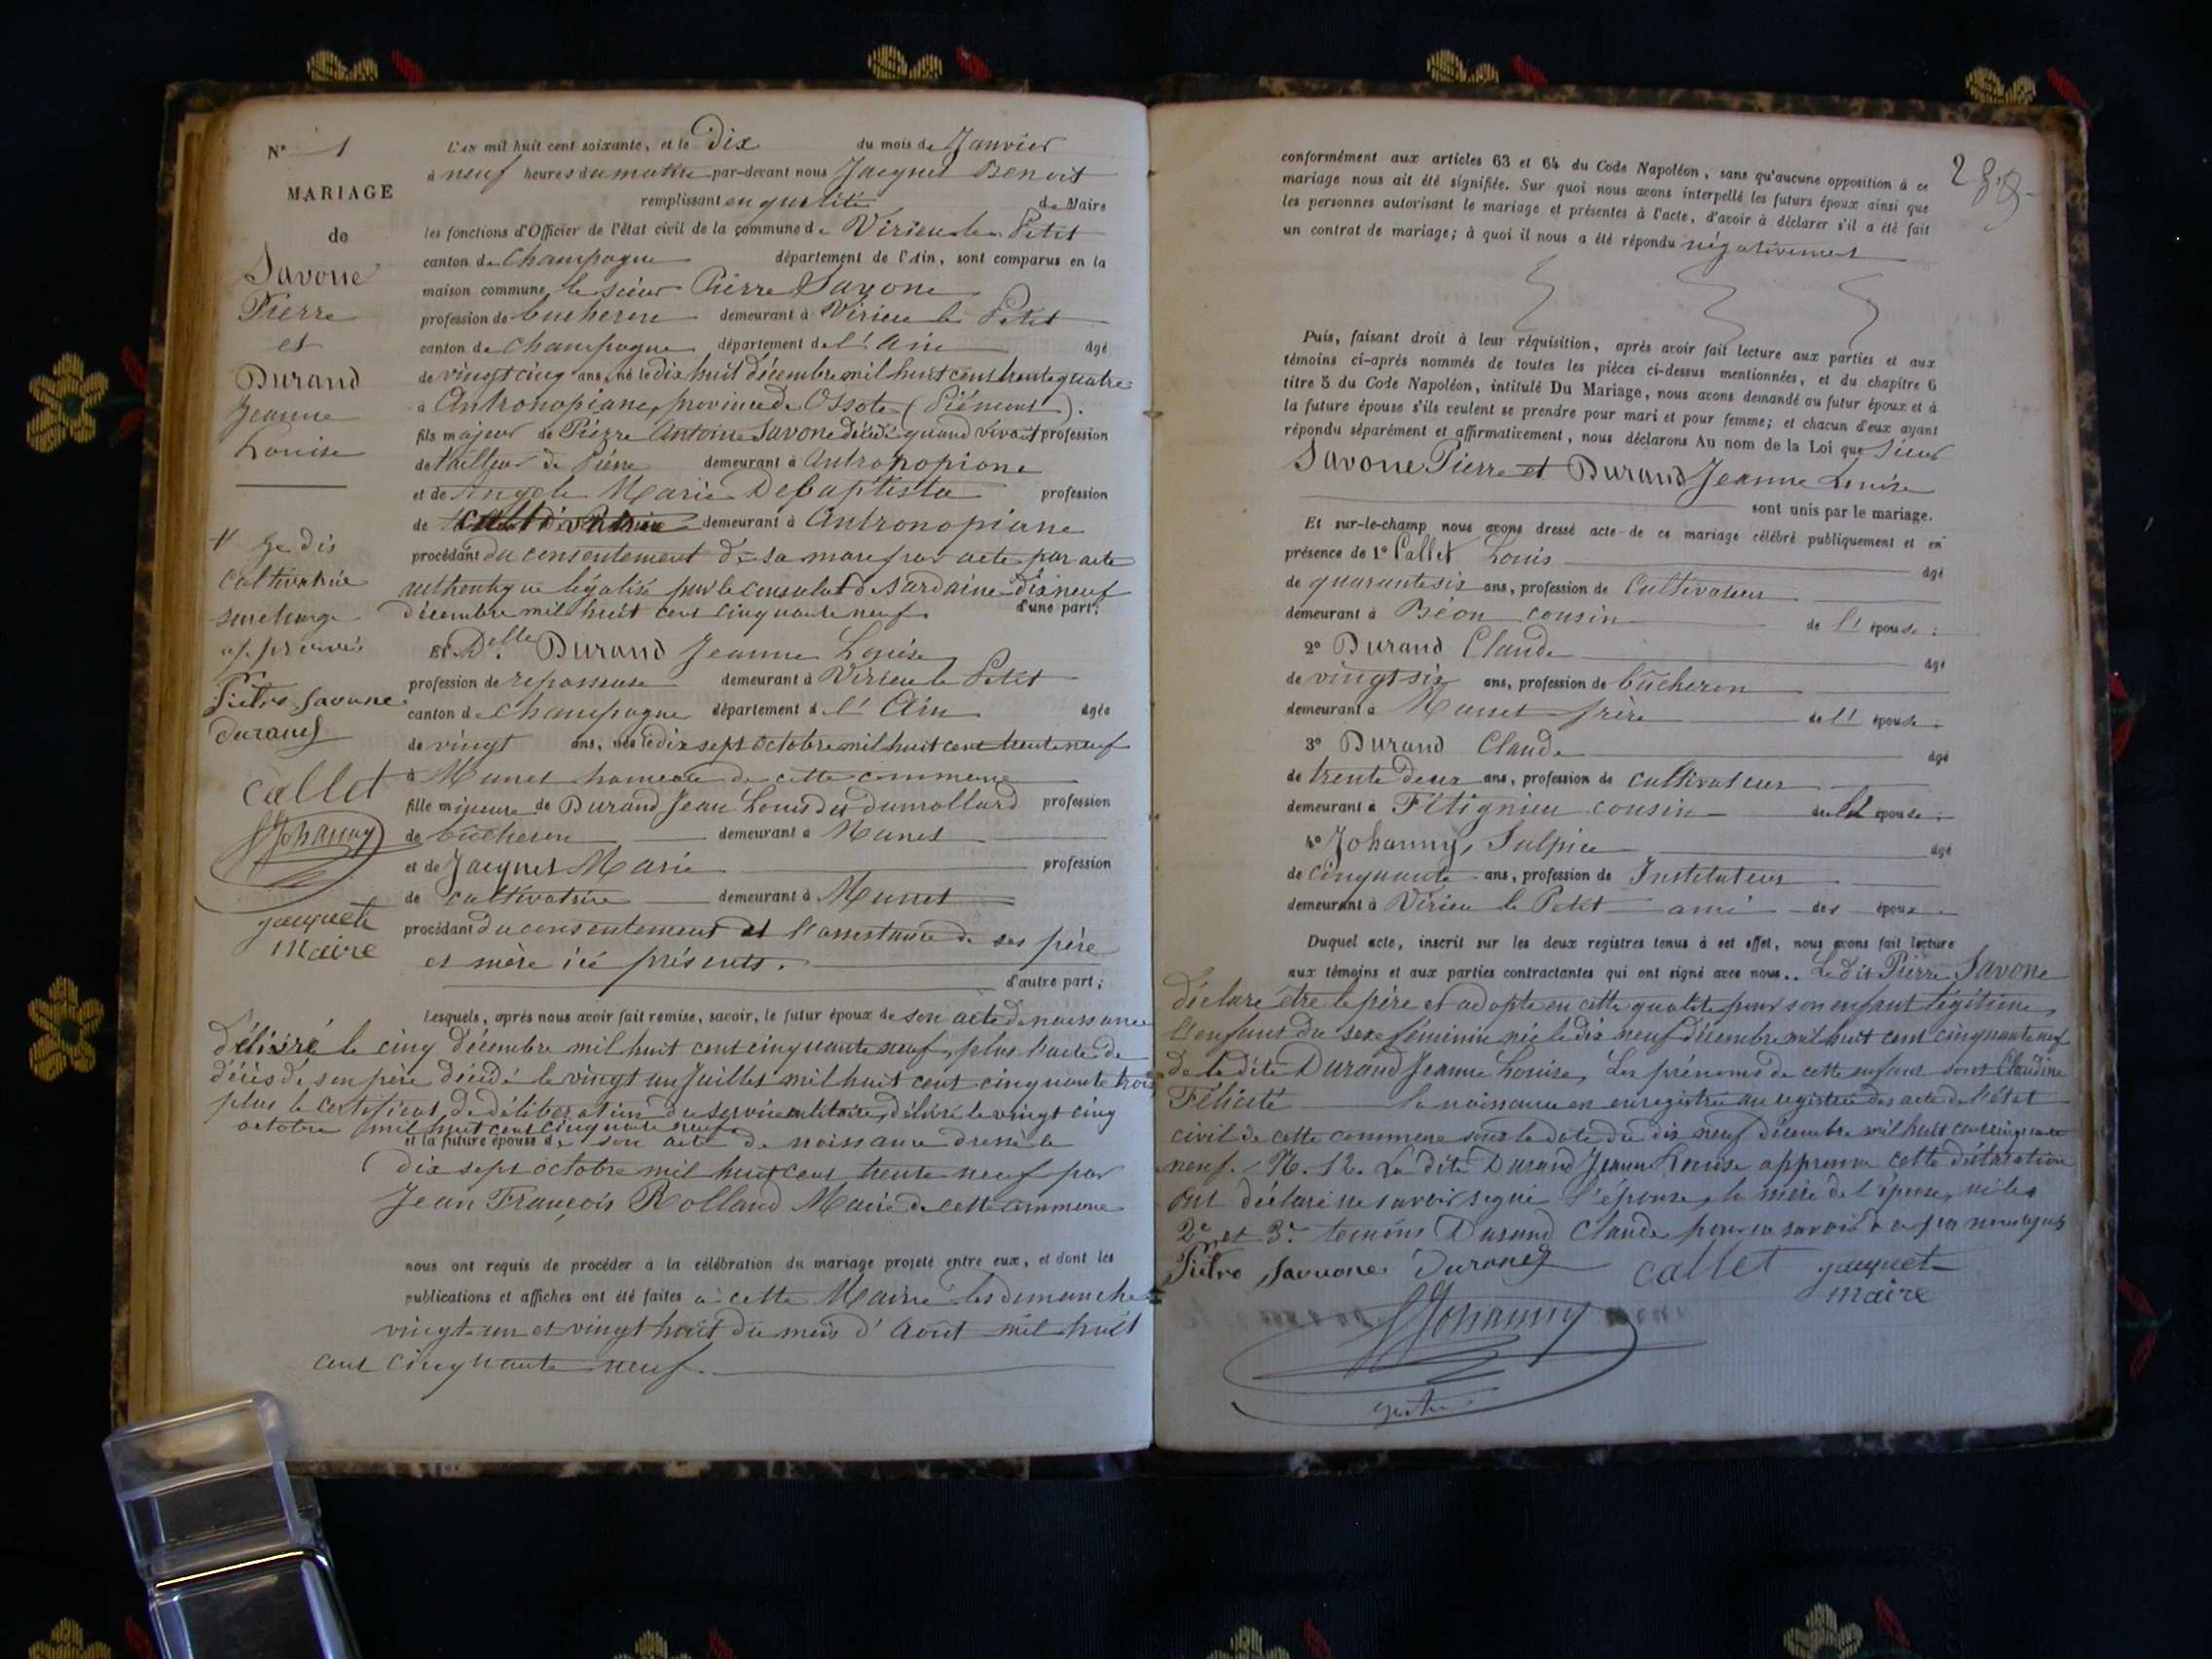 N° 1
MARIAGE
de
Savone
Pierre
et
Durand
Jeanne
Louise
L'an mil huit cent soixante, et le Dix du mois de Janvier
à neuf heures du matin par-devant nous Jacquet Benoit
remplissant en qualité de Maire
les fonctions d'Officier de l'état civil de la commune de Virieu le Petit
canton de Champagne département de l'Ain, sont comparus en la
maison commune, le sieur Pierre Savone
profession de bucheron demeurant à Virieu le Petit
canton de Champagne département de l'Ain âgé
de vingt cinq ans, né le dix huit décembre mil huit cent trente quatre
à Antronopiane, province de Ossola (Piémont).
fils majeur de Pierre Antoine Savone décédé quand vivait profession
de tailleur de Pierre demeurant à Antronopiane
et de Angele Marie Debaptista profession
de demeurant à Antronopiane
procédant du consentement de sa mere par acte par acte
authentique légalisé par le consulat de Sardaine dix neuf
décembre mil huit cent cinquante neuf. d'une part;
Et Delle Durand Jeanne Louise
profession de repasseuse demeurant à Virieu le Petit
canton de Champagne département de l'Ain âgée
de vingt ans, née le dix sept octobre mil huit cent trente neuf
à Munet hameau de cette commune
fille mineure de Durand Jean Louis dit Dumollard profession
de bûcheron demeurant à Munet
et de Jacquet Marie profession
de cultivatrice demeurant à Munet
procédant du consentement et l'assistance de ses père
et mère ici présents.
d'autre part;
Lesquels, après nous avoir fait remise, savoir, le futur époux de son acte de naissance
délivré le cinq décembre mil huit cent cinquante neuf, plus l'acte de
décès de son père décédé le vingt un Juillet mil huit cent cinquante trois
plus le certificat de déliberation du service militaire, délivré le vingt cinq
octobre mil huit cent cinquante neuf
et la future épouse de son acte de naissance dressé le
dix sept octobre mil huit cent trente neuf par
Jean François Rolland Maire de cette commune
nous ont requis de procéder à la célébration du mariage projeté entre eux, et dont les
publications et affiches ont été faites à cette Mairie les dimanche
vingt un et vingt huit du mois d'Août mil huit
cent cinquante neuf.
Je dis
cultivatrice
surcharge
approuvée
Pietro Savone
durand
callet
Johanny
jacquet
maire
conformément aux articles 63 et 64 du Code Napoléon, sans qu'aucune opposition à ce
mariage nous ait été signifiée. Sur quoi nous avons interpellé les futurs époux ainsi que
les personnes autorisant le mariage et présentes à l'acte, d'avoir à déclarer s'il a été fait
un contrat de mariage; à quoi il nous a été répondu négativement
Puis, faisant droit à leur réquisition, après avoir fait lecture aux parties et aux
témoins ci-après nommés de toutes les pièces ci-dessus mentionnées, et du chapitre 6
titre 5 du Code Napoléon, intitulé Du Mariage, nous avons demandé au futur époux et à
la future épouse s'ils veulent se prendre pour mari et pour femme; et chacun d'eux ayant
répondu séparément et affirmativement, nous déclarons Au nom de la Loi que sieur
Savone Pierre et Durand Jeanne Louise
sont unis par le mariage.
Et sur-le-champ nous avons dressé acte de ce mariage célébré publiquement et en
présence de 1° Callet Louis âgé
de quarante six ans, profession de Cultivateur
demeurant à Béon cousin de l'épouse;
2° Durand Claude âgé
de vingt six ans, profession de bûcheron
demeurant à Munet frère de l'épouse;
3° Durand Claude âgé
de trente deux ans, profession de cultivateur
demeurant à Fitignieu cousin de l'épouse;
4° Johanny, Sulpice âgé
de cinquante ans, profession de Instituteur
demeurant à Virieu le Petit ami des époux
Duquel acte, inscrit sur les deux registres tenus à cet effet, nous avons fait lecture
aux témoins et aux parties contractantes qui ont signé avec nous.. Le dit Pierre Savone
déclare être le père et adopte en cette qualité pour son enfant légitime
l'enfant du sexe féminin née le dix neuf décembre mil huit cent cinquante neuf
de la dite Durand Jeanne Louise. Les prénoms de cette enfant sont Claudine
Félicité la naissance en enregistrée au registre des acte de l'état
civil de cette commune sous la date du dix neuf décembre mil huit cent cinquante
neuf. N. 12. La dite Durand Jeanne Louise approuve cette déclaration
ont déclaré ne savoir signé l'épouse, la mère de l'épouse, ni les
2e et 3e temoins Durand Claude
Pietro Savone durand callet jacquet
maire
Johanny